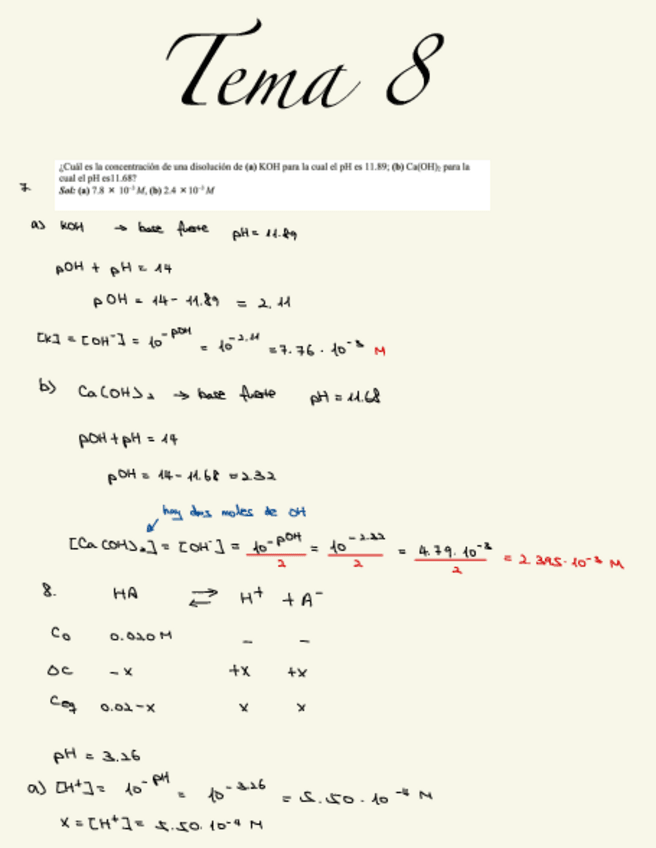 Tema 8
7. ¿Cuál es la concentración de una disolución de (a) KOH para la cual el pH es 11.89; (b) Ca(OH)₂ para la
cual el pH es11.68?
Sol: (a) 7.8 × 10⁻³ M, (b) 2.4 × 10⁻³ M
a) KOH → base fuerte pH = 11.89
pOH + pH = 14
pOH = 14 - 11.89 = 2.11
[K] = [OH⁻] = 10^-pOH = 10^-2.11 = 7.76 · 10⁻³ M
b) Ca(OH)₂ → base fuerte pH = 11.68
pOH + pH = 14
pOH = 14 - 11.68 = 2.32
hay dos moles de OH
[Ca(OH)₂] = [OH⁻] = 10^-pOH/2 = 10^-2.32/2 = 4.79 · 10⁻³/2 = 2.395 · 10⁻³ M
8. HA ⇌ H⁺ + A⁻
Co 0.020 M - -
ΔC -x +x +x
Ceq 0.02-x x x
pH = 3.26
a) [H⁺] = 10^-pH = 10^-3.26 = 5.50 · 10⁻⁴ M
x = [H⁺] = 5.50 · 10⁻⁴ M